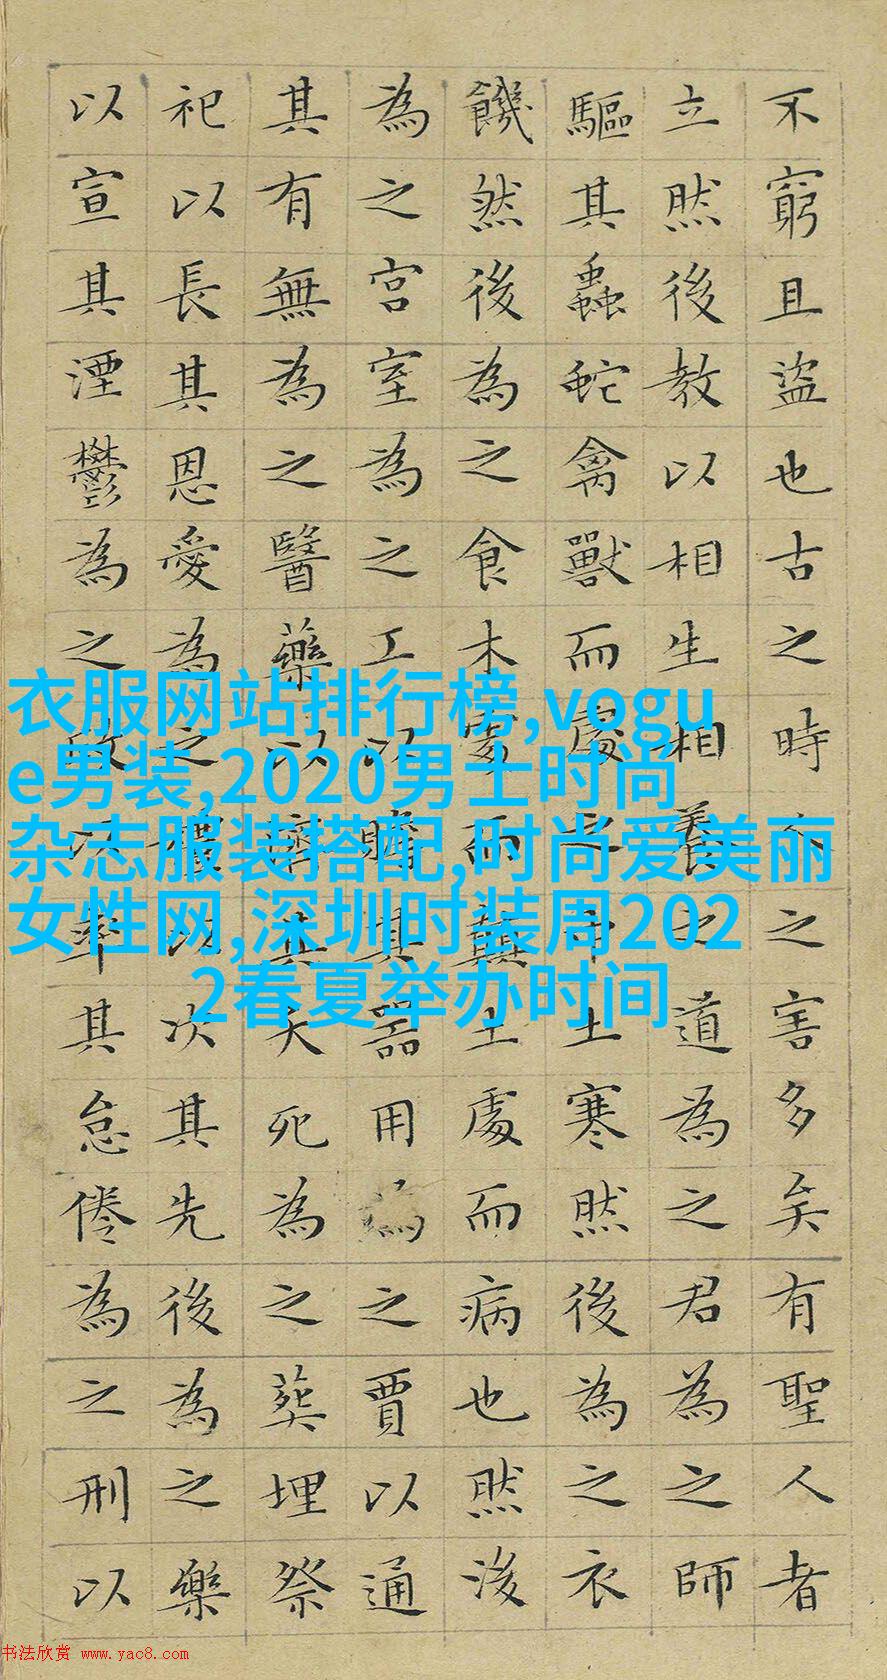 不窮且盜也古之時之害多矣有聖人者
立然後教以相生相養之道為之君為之師
驅其蟲蛇禽獸而處之中土寒然後為之衣
饑然後為之食木處而顛土處而病也然後
為之宮室為之工以贍其器用為之賈以通
其有無為之醫藥以濟其夭死為之葬埋祭
祀以長其恩愛為之禮以次其先後為之樂
以宣其湮鬱為之政以率其怠倦為之刑以
衣服网站排行榜,vogu
e男装,2020男士时尚
杂志服装搭配,时尚爱美丽
女性网,深圳时装周202
2春夏举办时间
书法欣赏 www.yac8.com